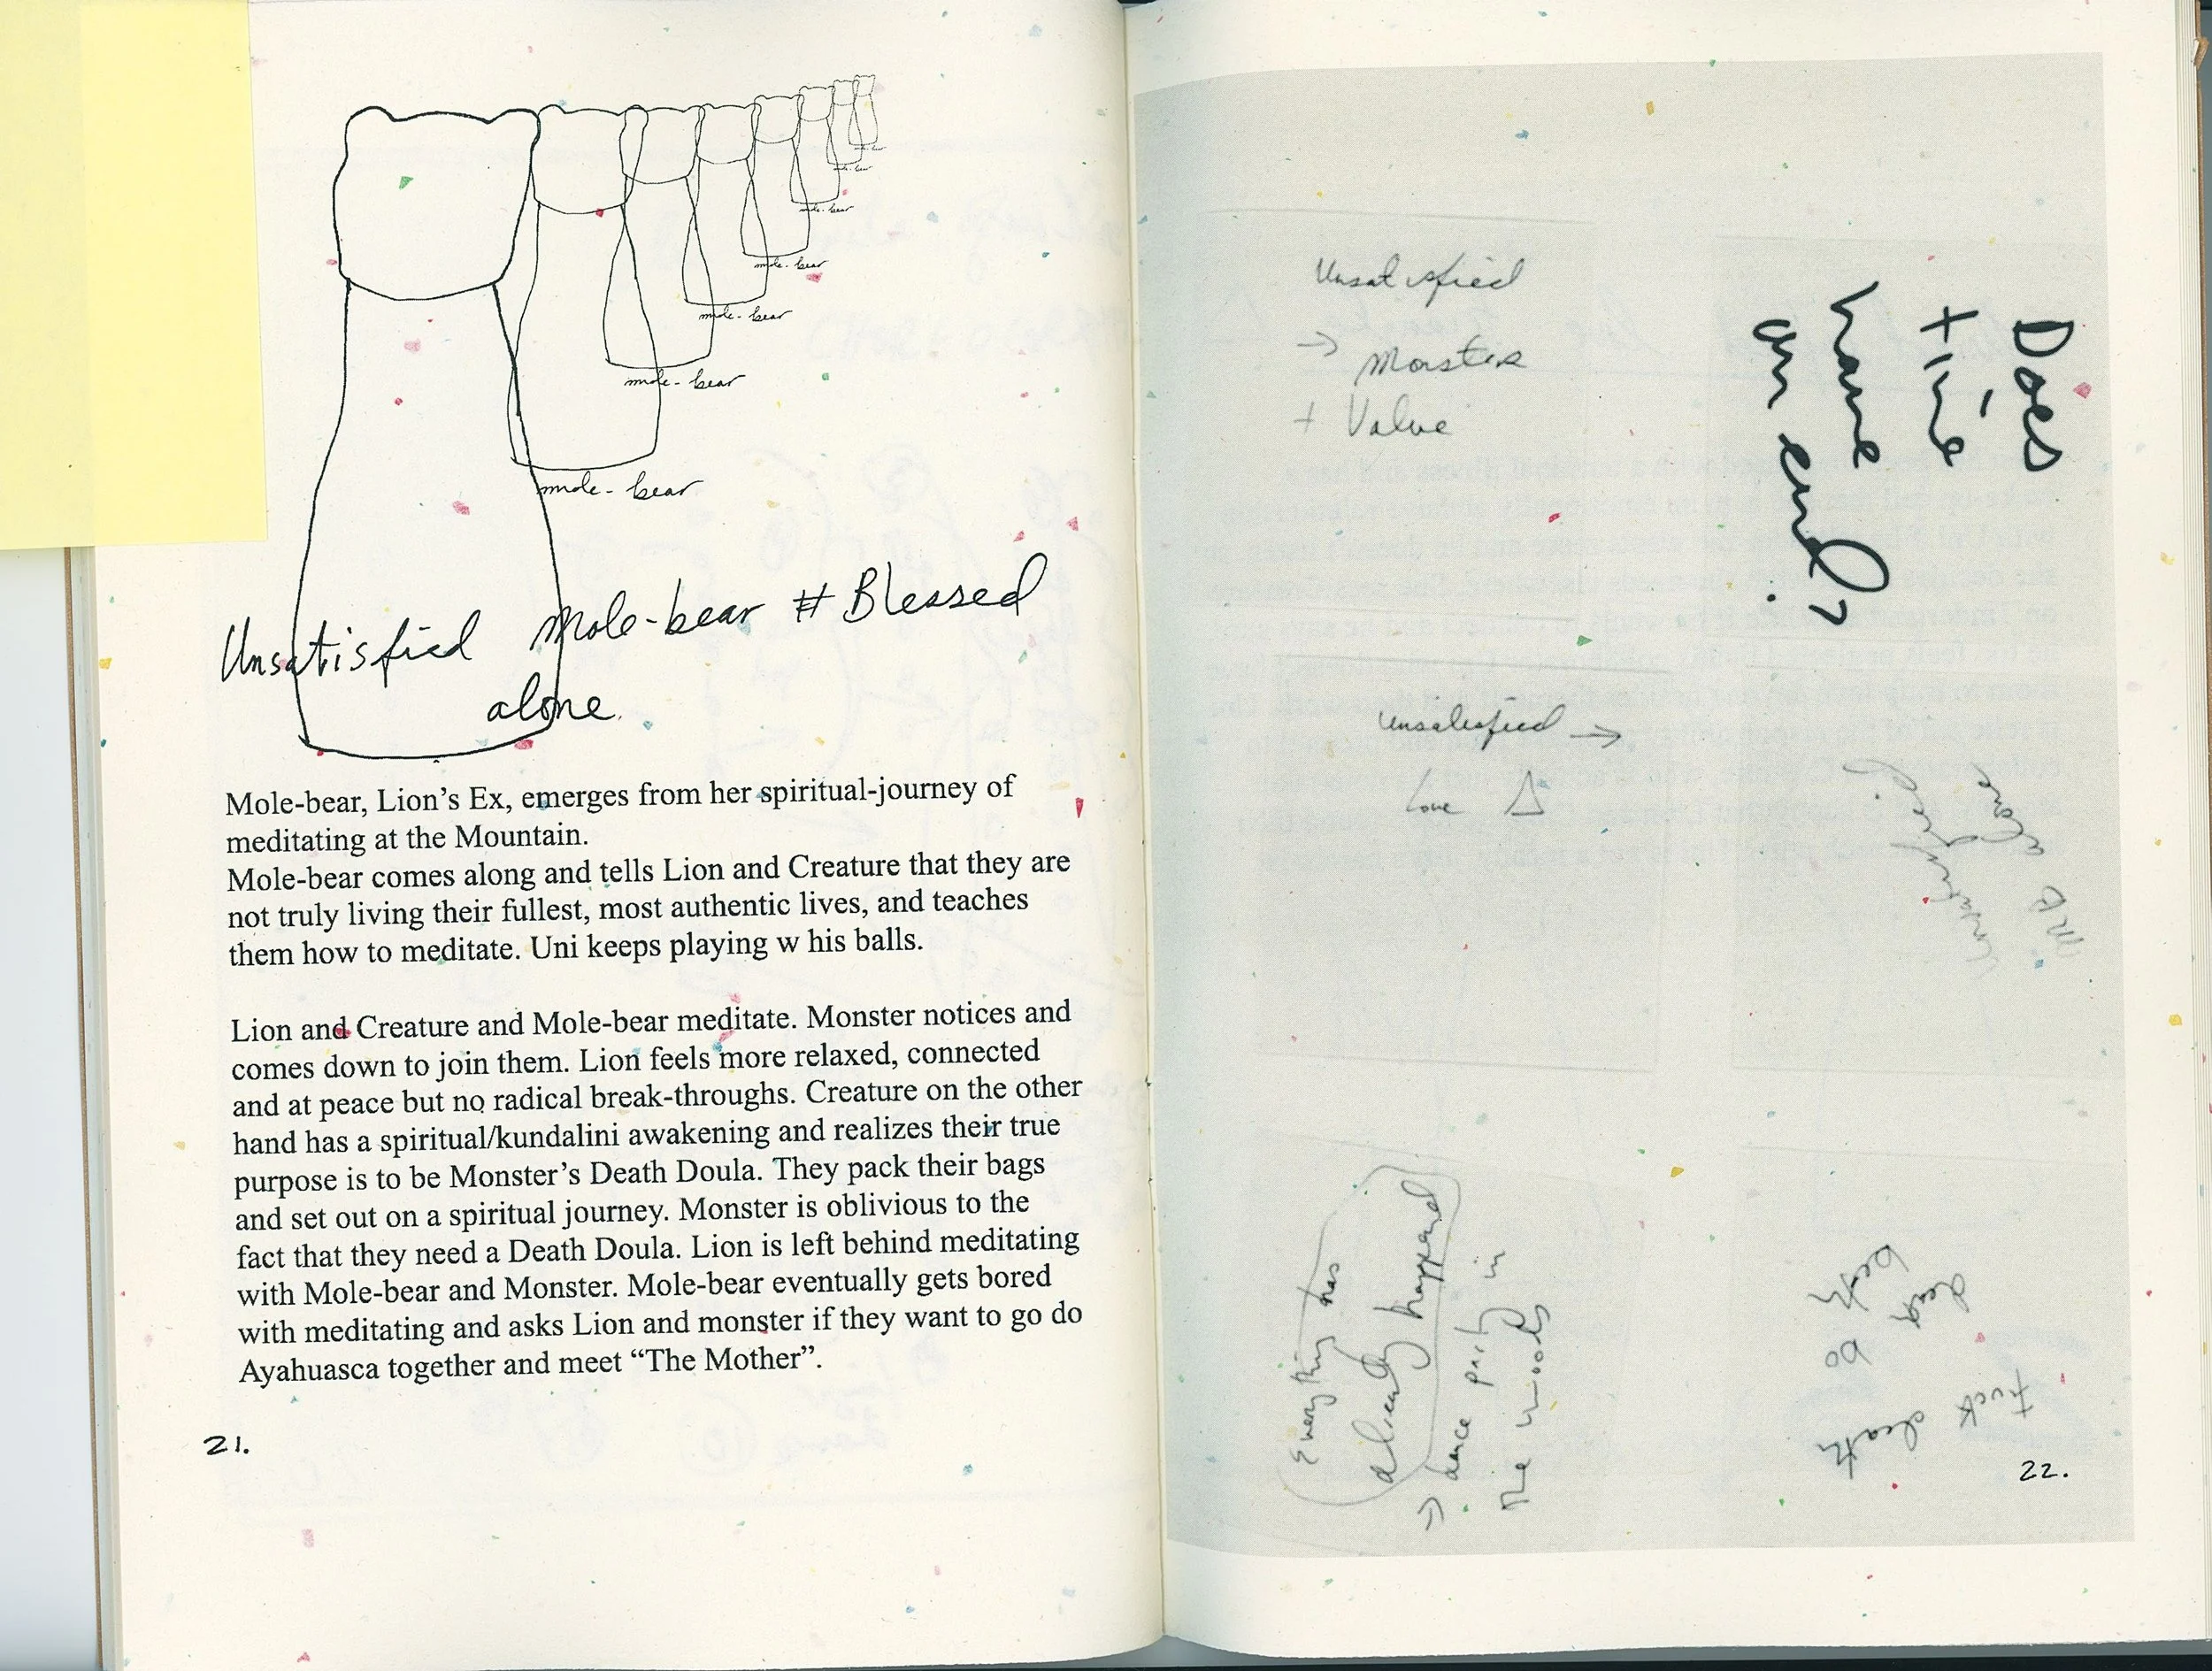 mole-bear
mole-bear
mole-bear
mole-bear
mole-bear
mole-bear
mole-bear
Unsatisfied Mole-bear # Blessed
alone.
Mole-bear, Lion's Ex, emerges from her spiritual-journey of
meditating at the Mountain.
Mole-bear comes along and tells Lion and Creature that they are
not truly living their fullest, most authentic lives, and teaches
them how to meditate. Uni keeps playing w his balls.
Lion and Creature and Mole-bear meditate. Monster notices and
comes down to join them. Lion feels more relaxed, connected
and at peace but no radical break-throughs. Creature on the other
hand has a spiritual/kundalini awakening and realizes their true
purpose is to be Monster's Death Doula. They pack their bags
and set out on a spiritual journey. Monster is oblivious to the
fact that they need a Death Doula. Lion is left behind meditating
with Mole-bear and Monster. Mole-bear eventually gets bored
with meditating and asks Lion and monster if they want to go do
Ayahuasca together and meet “The Mother”.
21.
Unsatisfied
→ Monster
+ Value
Does
time
have
an end?
Unsatisfied →
Love △
MB alone
Unsatisfied
Everything has
already happened
⇒ dance party in
the woods
Fuck death
22.